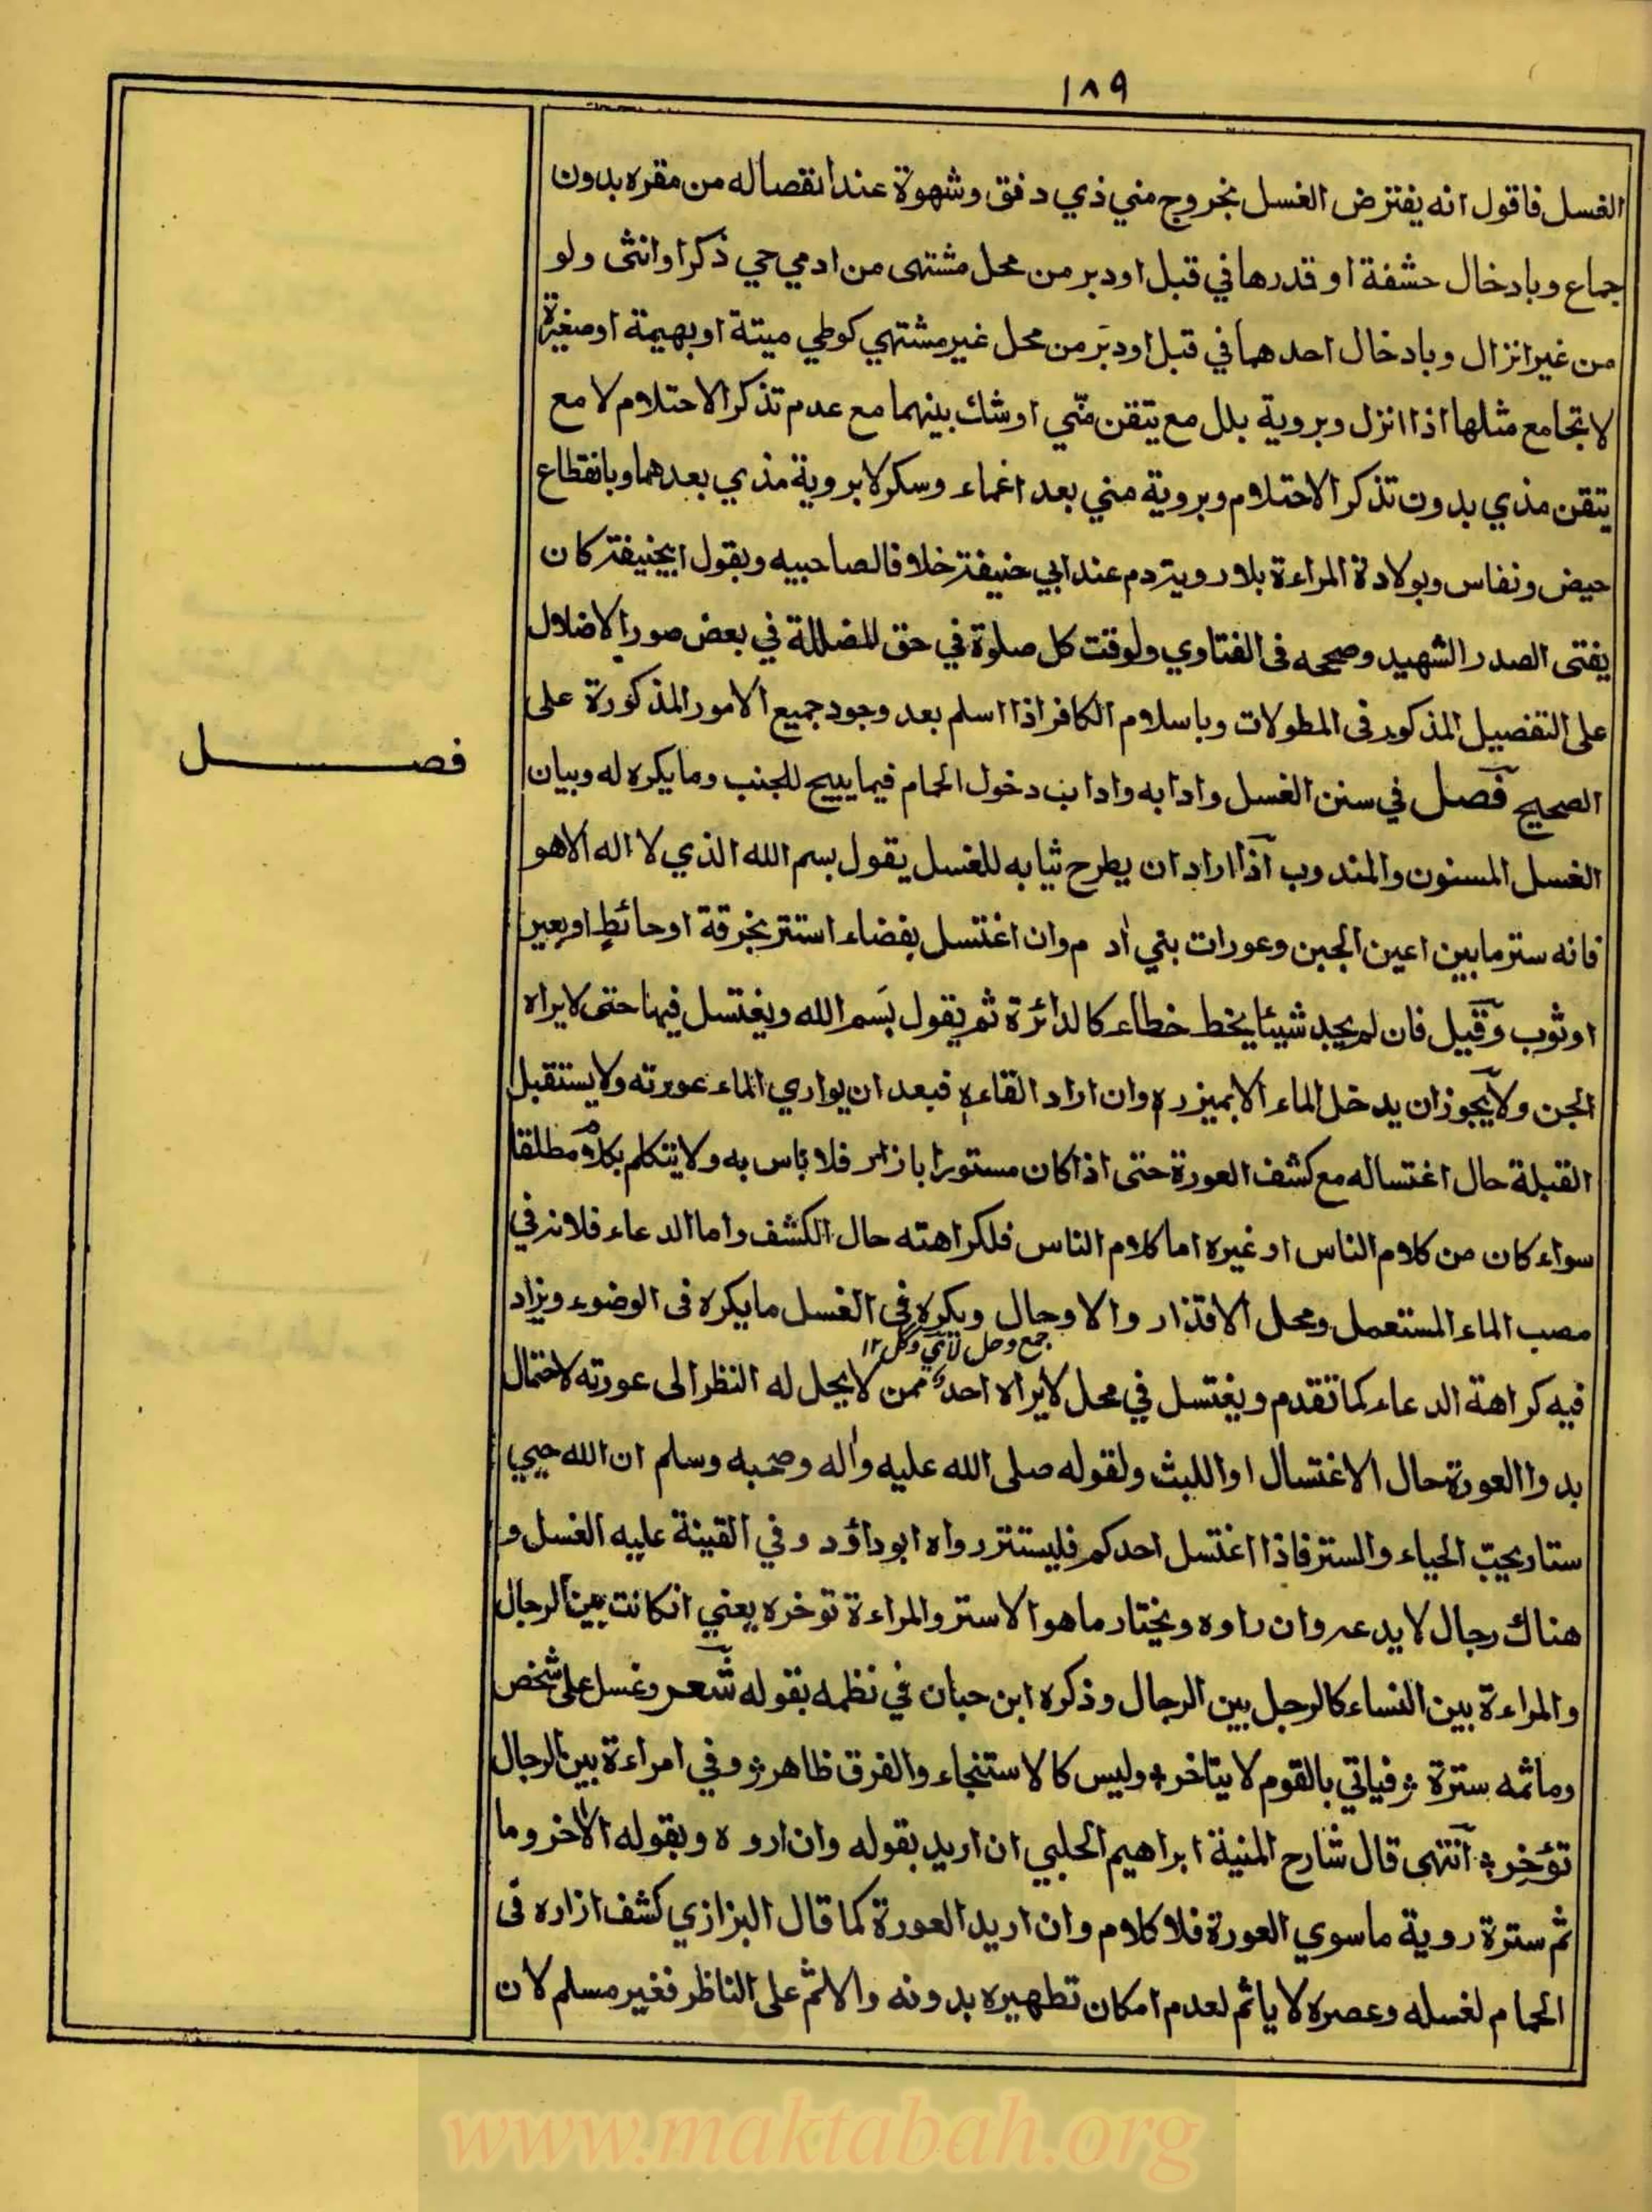 ١٨٩
الغسل فاقول انه يفترض الغسل بخروج مني ذي دفق وشهوة عند انفصاله من مقره بدون
جماع وبادخال حشفة او قدرها في قبل او دبر من محل مشتهى من ادمي حي ذكرا وانثى ولو
من غير انزال وبادخال احدهما في قبل او دبر من محل غير مشتهي كوطي ميتة او بهيمة او صغيرة
لا تجامع مثلها اذا انزل وبروية بلل مع يتقن منّي او شك بينهما مع عدم تذكر الاحتلام لا مع
يتقن مذي بدون تذكر الاحتلام وبروية مني بعد اغماء وسكر لا بروية مذي بعدهما وبانقطاع
حيض ونفاس وبولادة المراءة بلا روية دم عند ابي حنيفة خلافا لصاحبيه وبقول ابيحنيفة كان
يفتى الصدر الشهيد وصححه فى الفتاوي ولوقت كل صلوة في حق المضللة في بعض صور الاضلال
على التفصيل المذكور فى المطولات وباسلام الكافر اذا اسلم بعد وجود جميع الامور المذكورة على
فصل
الصحيح فصل في سنن الغسل وادابه واداب دخول الحمام فيما يبيح للجنب وما يكره له وبيان
الغسل المسنون والمندوب آذا اراد ان يطرح ثيابه للغسل يقول بسم الله الذي لا اله الا هو
فانه ستر ما بين اعين الجن وعورات بني ادم وان اغتسل بفضاء استتر بخرقة او حائط او بعير
او ثوب وقيل فان لم يجد شيئا يخط خطاء كالدائرة ثم يقول بسم الله ويغتسل فيها حتى لا يراه
الجن ولا يجوز ان يدخل الماء الا بميزره وان اراد القاءه فبعد ان يواري الماء عورته ولا يستقبل
القبلة حال اغتساله مع كشف العورة حتى اذا كان مستورا بازار فلا باس به ولا يتكلم بكلام مطلقا
سواء كان من كلام الناس او غيره اما كلام الناس فلكراهته حال الكشف واما الدعاء فلانه في
مصب الماء المستعمل ومحل الاقذار والاوحال ويكره في الغسل ما يكره فى الوضوء ويزاد
جمع وحل ١٢
فيه كراهة الدعاء كما تقدم ويغتسل في محل لا يراه احد ممن لا يحل له النظر الى عورته لاحتمال
بدوا العورة حال الاغتسال او اللبث ولقوله صلى الله عليه واله وصحبه وسلم ان الله حيي
ستار يحبّ الحياء والستر فاذا اغتسل احدكم فليستتر رواه ابو داؤد وفي القينة عليه الغسل و
هناك رجال لا يدعه وان راوه ويختار ما هو الاستر والمراءة توخره يعني انكانت بين الرجال
والمراءة بين النساء كالرجل بين الرجال وذكره ابن حبان في نظمه بقوله شعر وغسل على شخص
وماثمه سترة فياتي بالقوم لا يتاخر وليس كالاستنجاء والفرق ظاهر وفي امراءة بين الرجال
تؤخر آنتهى قال شارح المنية ابراهيم الحلبي ان اريد بقوله وان اروه وبقوله الاخر وما
ثم سترة روية ما سوي العورة فلا كلام وان اريد العورة كما قال البزازي كشف ازاره فى
الحمام لغسله وعصره لا ياثم لعدم امكان تطهيره بدونه والاثم على الناظر فغير مسلم لان
www.maktabah.org